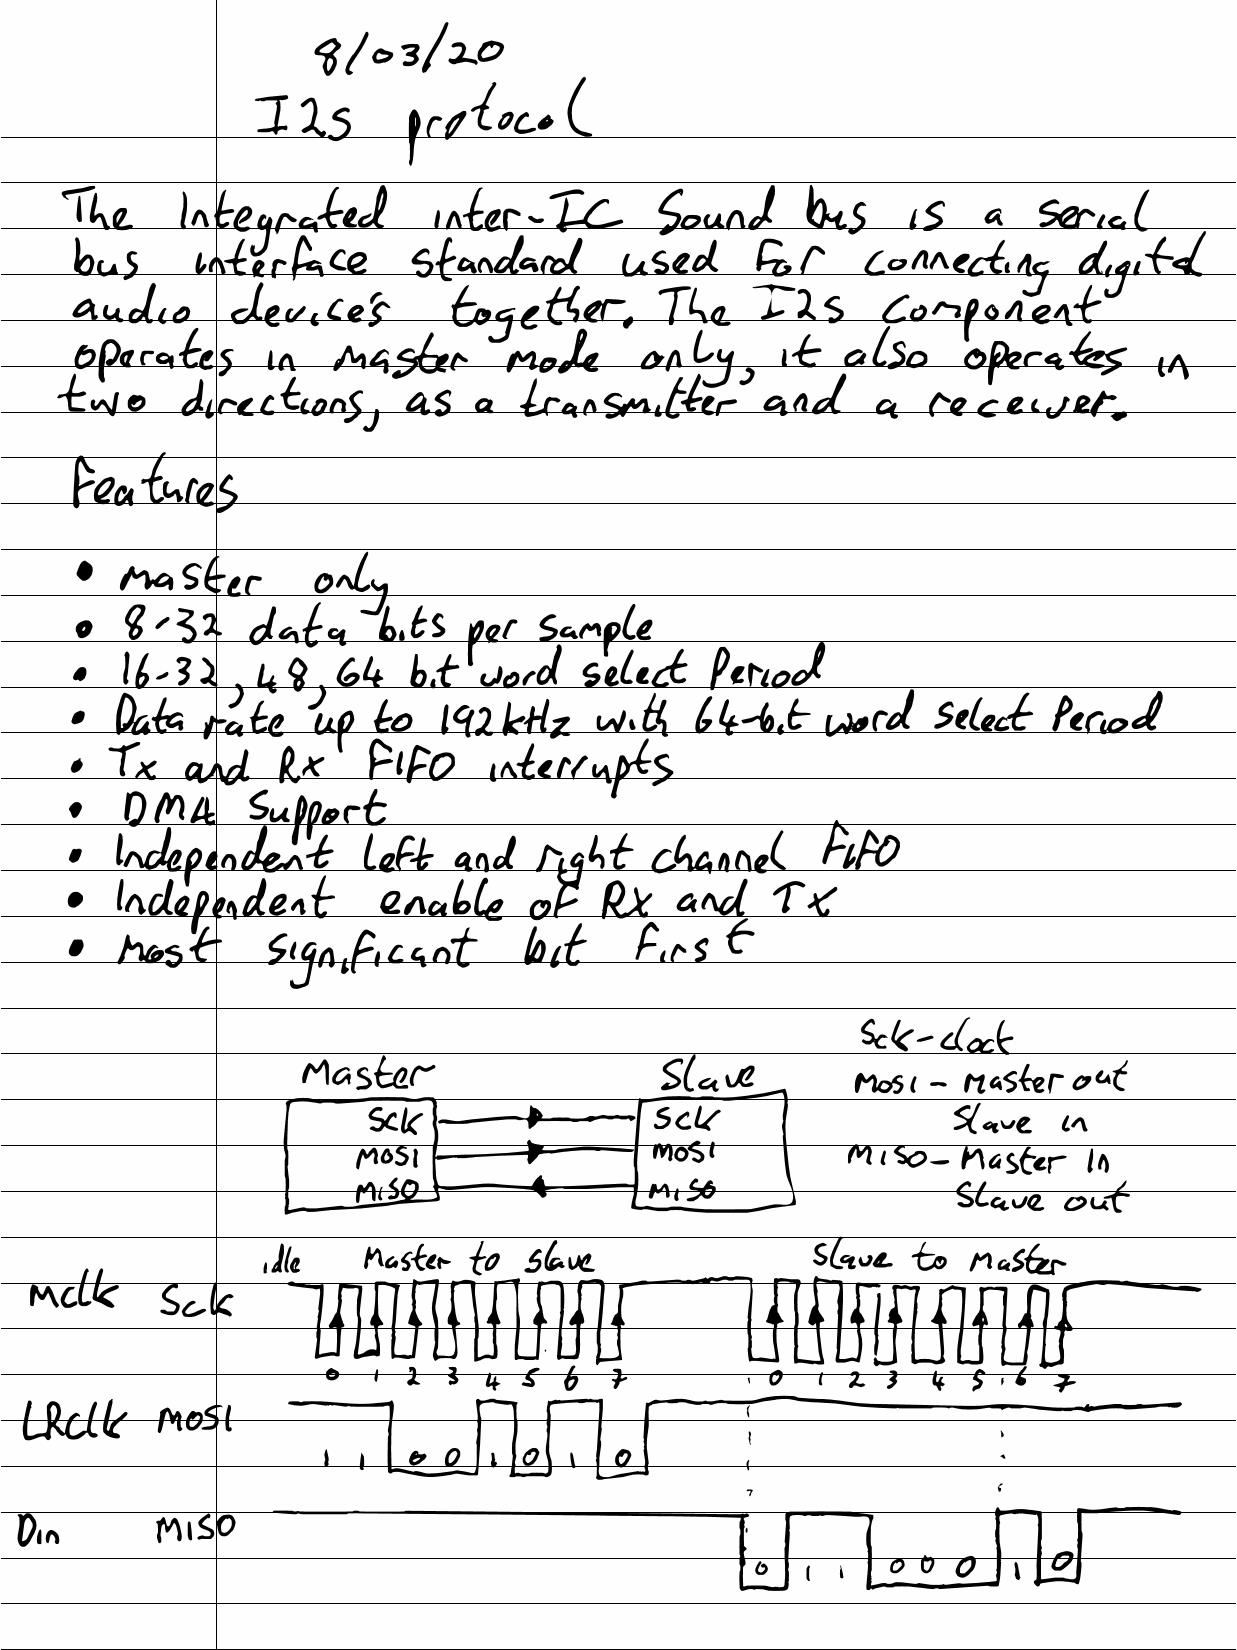 8/03/20
I2s protocol
The Integrated inter-IC Sound bus is a serial
bus interface standard used for connecting digital
audio device's together. The I2s component
operates in master mode only, it also operates in
two directions, as a transmitter and a receiver.
Features
• master only
• 8-32 data bits per sample
• 16-32, 48, 64 bit word select Period
• Data rate up to 192kHz with 64-bit word select Period
• Tx and Rx FIFO interrupts
• DMA Support
• Independent left and right channel FIFO
• Independent enable of Rx and Tx
• Most significant bit first
Sck-clock
Master Slave
MOSI - Master out
SCK SCK
Slave in
MOSI MOSI
MISO - Master in
MISO MISO
Slave out
idle Master to slave Slave to Master
Mclk Sck
0 1 2 3 4 5 6 7 0 1 2 3 4 5 6 7
LRclk MOSI
1 1 0 0 1 0 1 0
Din MISO
0 1 1 0 0 0 1 0